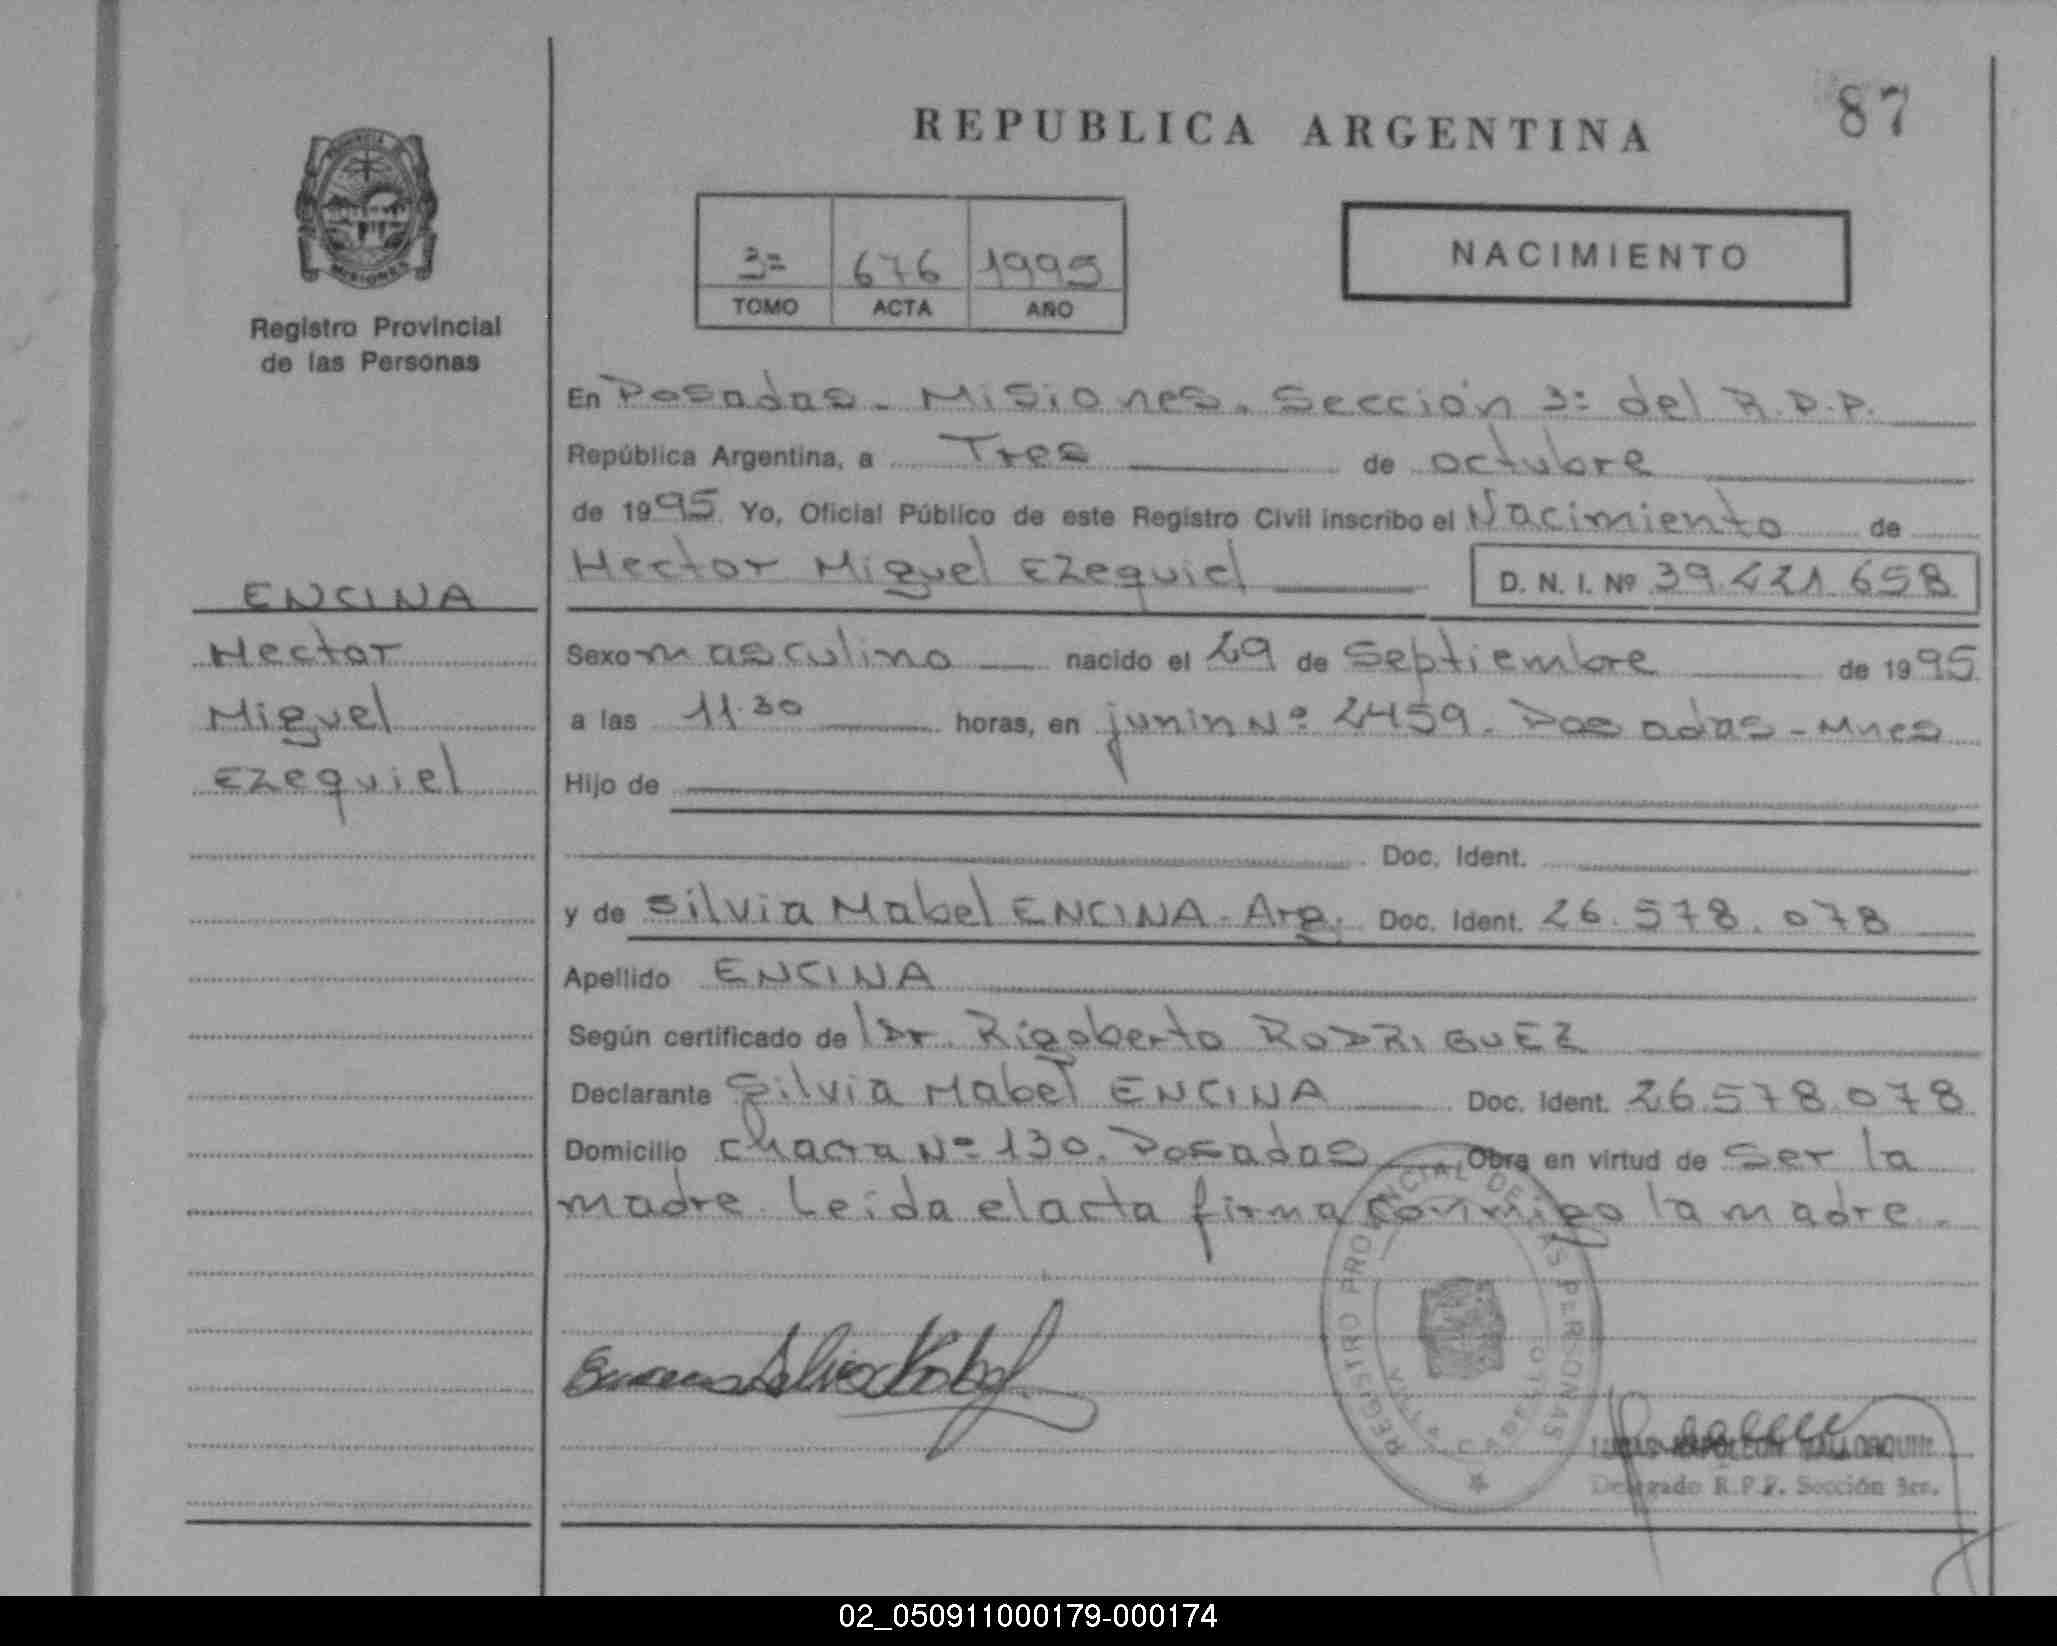 REPUBLICA ARGENTINA
87
PROVINCIA
MISIONES
Registro Provincial
de las Personas
3=
676
1995
TOMO
ACTA
AÑO
NACIMIENTO
En Posadas - Misiones. Sección 3= del R.P.P.
República Argentina, a Tres de octubre
de 1995 Yo, Oficial Público de este Registro Civil inscribo el Nacimiento de
Hector Miguel Ezequiel
D. N. I. Nº 39.221.658
ENCINA
Hector
Miguel
Ezequiel
Sexo masculino nacido el 29 de Septiembre de 1995
a las 11.30 horas, en junin Nº 2459. Posadas - Mnes
Hijo de
Doc. Ident.
y de Silvia Mabel ENCINA - Arg. Doc. Ident. 26.578.078
Apellido ENCINA
Según certificado del Dr. Rigoberto RODRIGUEZ
Declarante Silvia Mabel ENCINA Doc. Ident. 26.578.078
Domicilio chacra Nº 130. Posadas Obra en virtud de Ser la
madre. Leida el acta firma conmigo la madre.
REGISTRO PROVINCIAL DE LAS PERSONAS
Encina Silvia Mabel
LUCAS NAPOLEON
Delegado R.P.P. Sección 3ra.
02_050911000179-000174